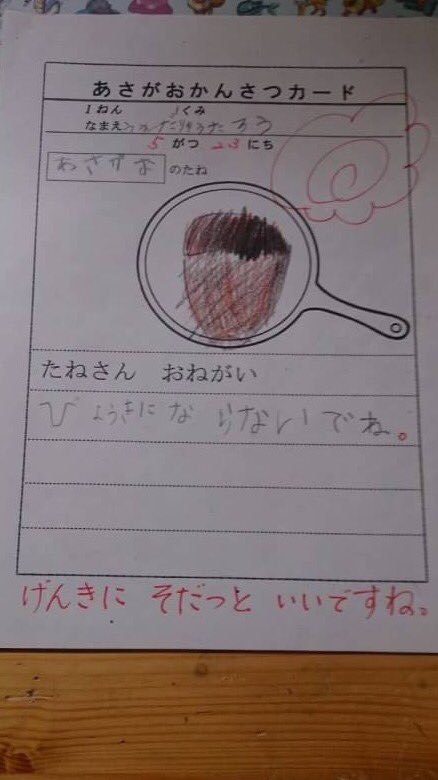 あさがおかんさつカード
1ねん 1くみ
なまえ
5 がつ 23 にち
あさがお のたね
たねさん おねがい
びょうきにならないでね。
げんきに そだっと いいですね。